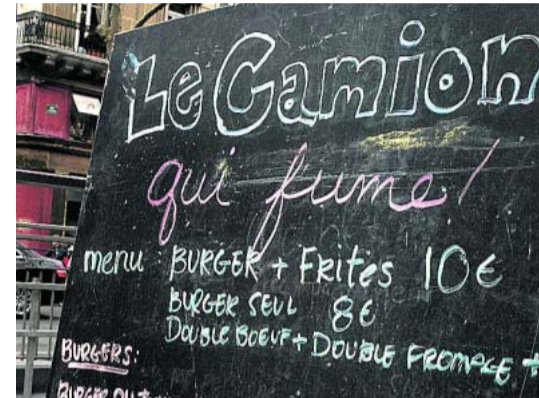 Le Camion
qui fume!
menu BURGER + FRites 10€
BURGER SEUL 8€
DOUBLE BOEUF + DOUBLE FROMAGE +
BURGERS:
BURGER